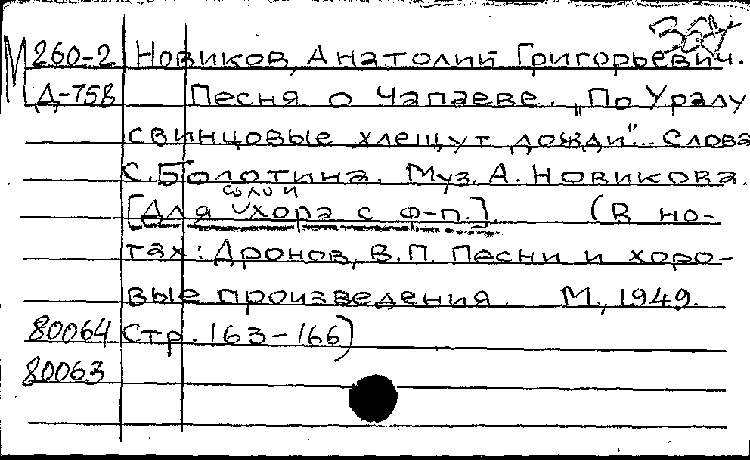 М 260-2 Новиков, Анатолий Григорьевич.
Д-758 Песня о Чапаеве. „По Уралу
свинцовые хлещут дожди". Слова
С. Болотина. Муз. А. Новикова.
соло и
[Для хора с ф-п.]. (В но-
тах: Дронов, В.П. Песни и хоро-
вые произведения. М., 1949.
80064 Стр. 163-166)
80063